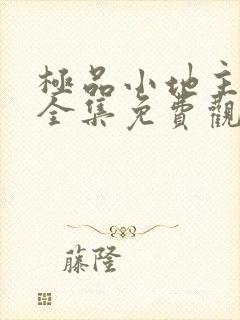 極品小地主
全集免費觀
藤隆